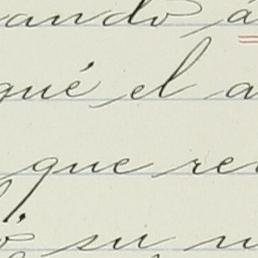 ando á
qué el a
que re
su